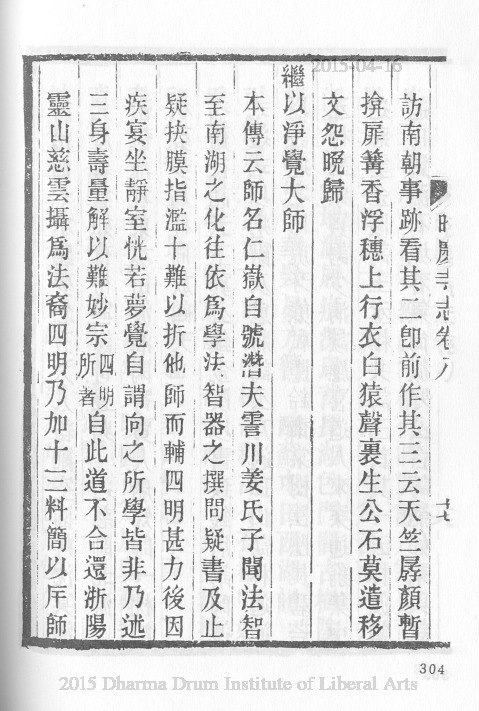 2015-04-16
昭慶寺志卷八
訪南朝事跡看其二卽前作其三云天竺孱顏暫
揜扉篝香浮穗上行衣白猿聲裏生公石莫遣移
文怨晚歸
繼以淨覺大師
本傳云師名仁嶽自號潛夫霅川姜氏子聞法智
至南湖之化往依爲學法智器之撰問疑書及止
疑抉膜指濫十難以折他師而輔四明甚力後因
疾宴坐靜室恍若夢覺自謂向之所學皆非乃述
三身壽量解以難妙宗四明所者自此道不合還浙陽
靈山慈雲攝爲法裔四明乃加十三料簡以斥師
304
2015 Dharma Drum Institute of Liberal Arts